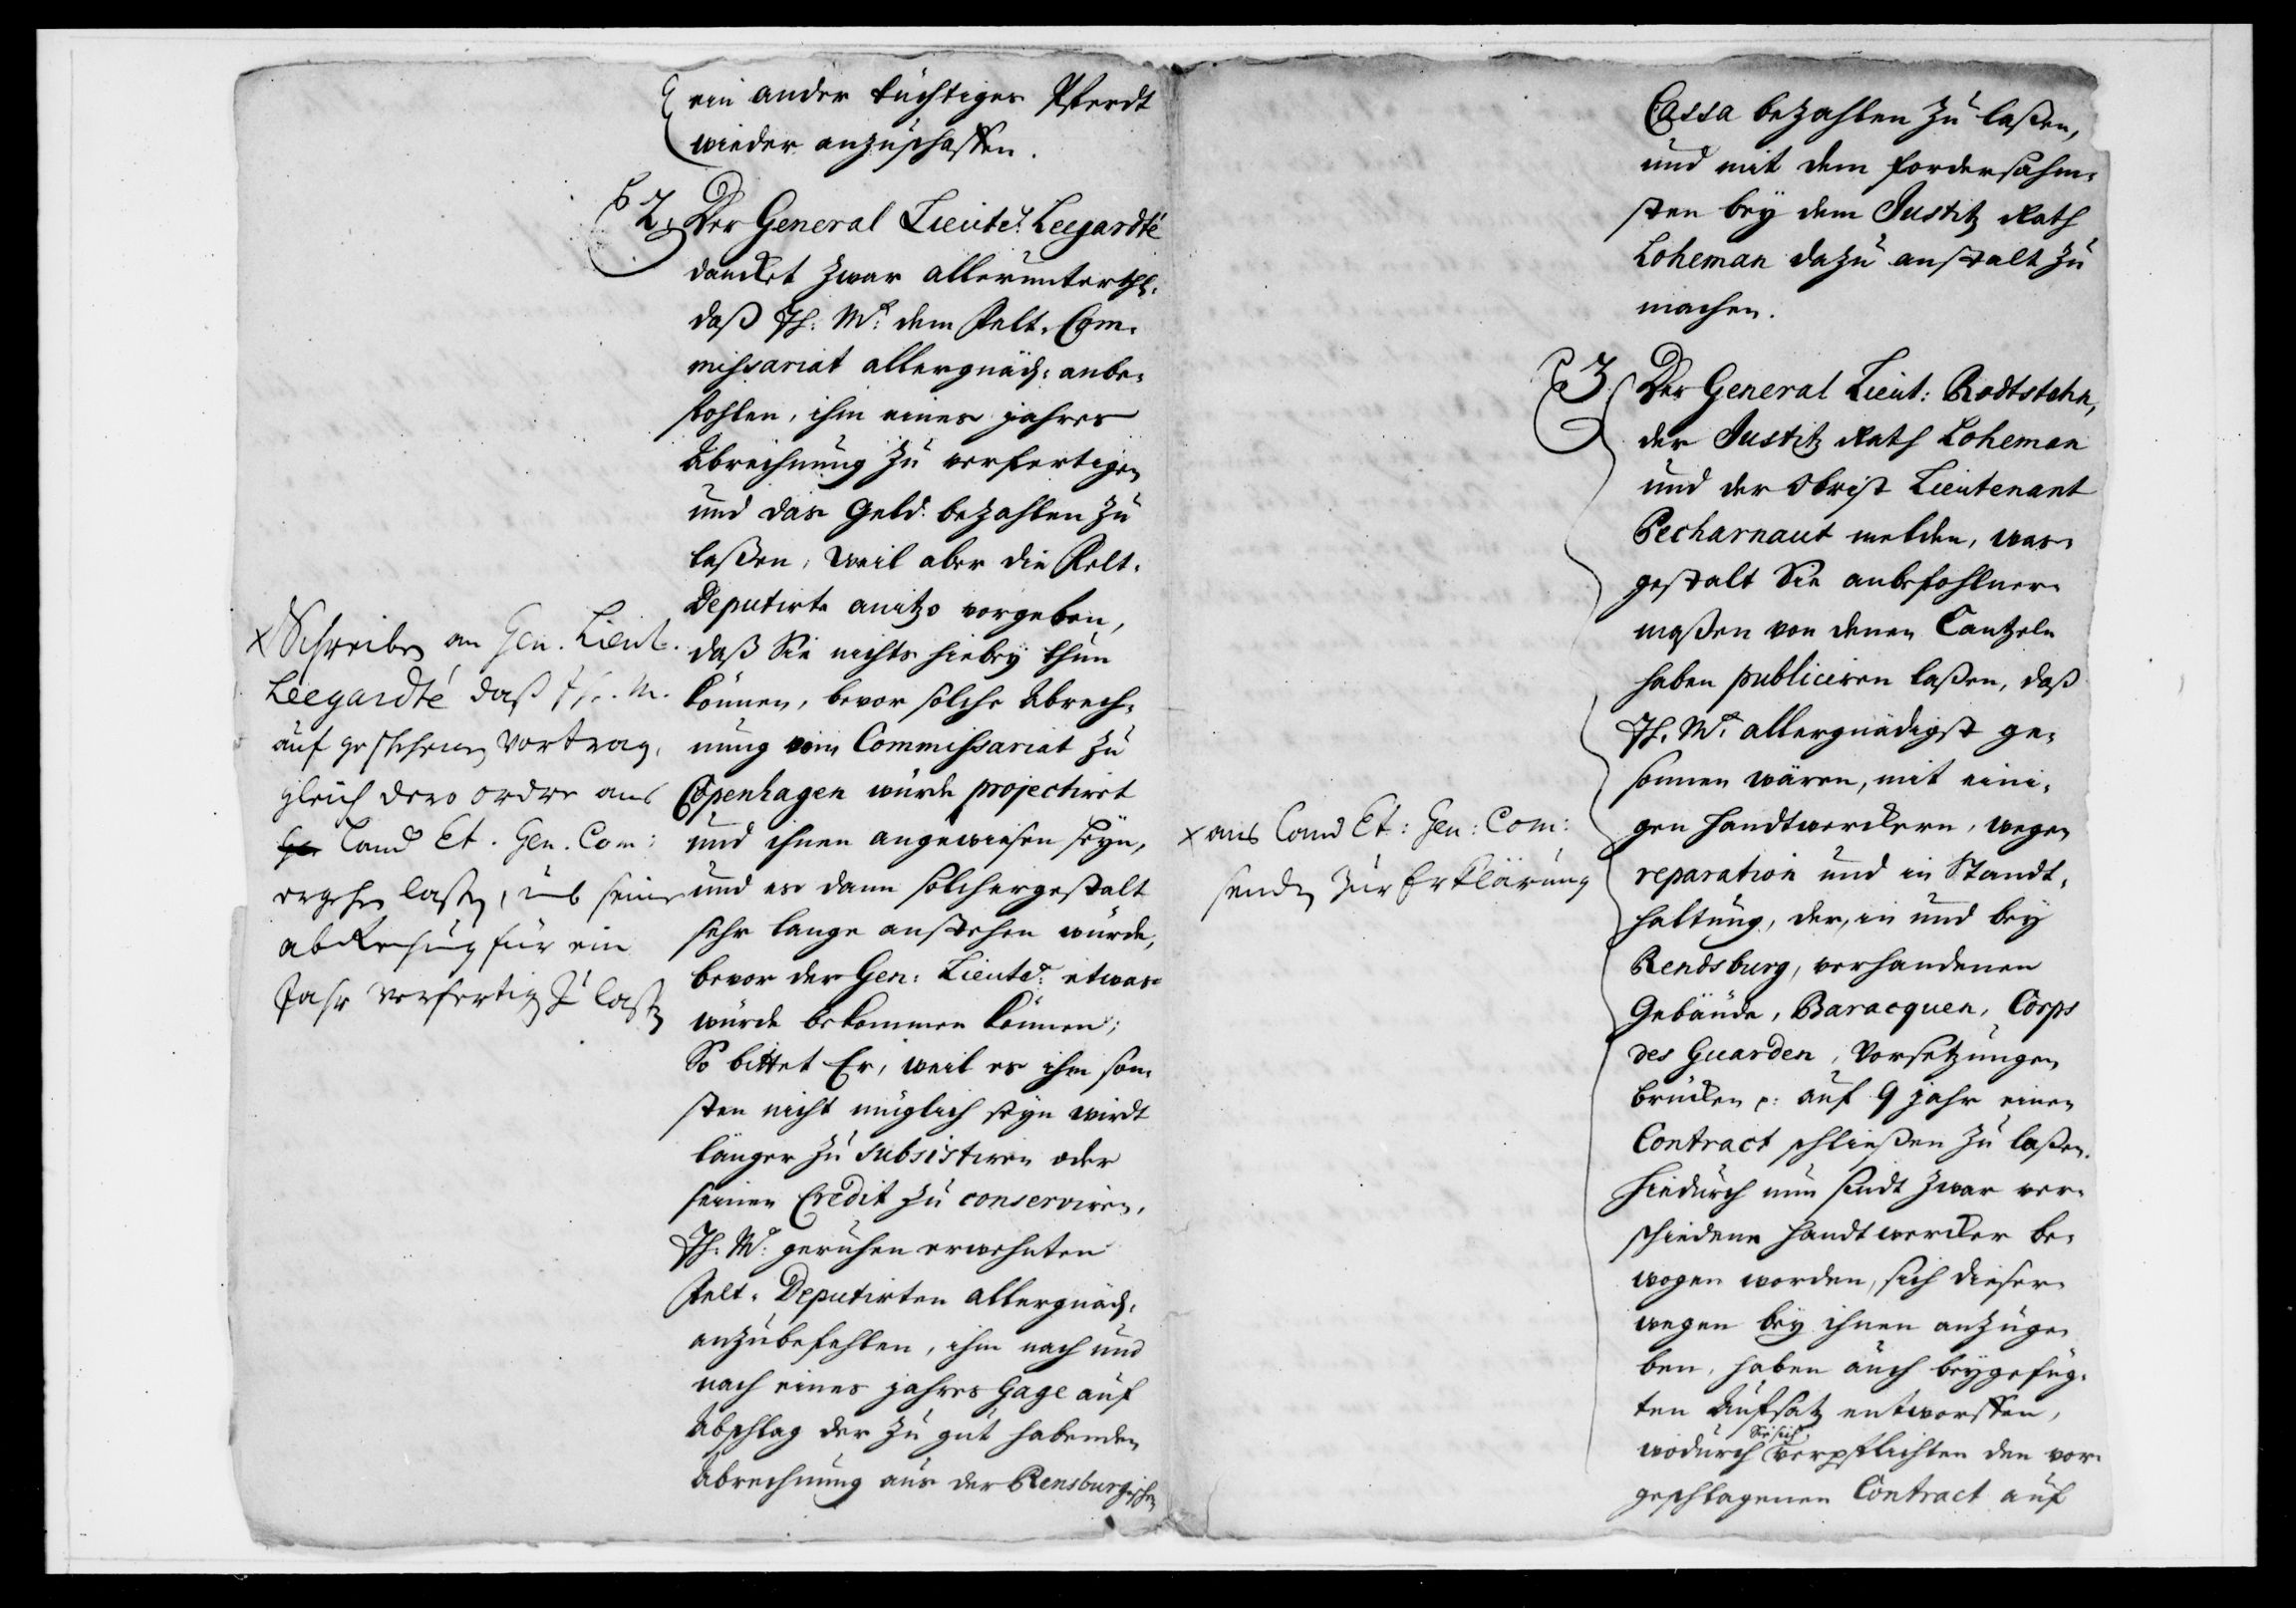 ein ander tüchtiges Pferdt
wieder anzuschaffen.
2. Der General Lieut: Leegardté
dancket zwar allerunterth:
daß Ih: M: dem Felt-Com-
missariat allergnäd: anbe-
fohlen, ihm eines jahres
Abrechnung zu verfertigen
und das Geld bezahlen zu
laßen, weil aber die Felt-
Deputirte anitzo vorgeben,
daß Sie nichts hiebey thun
können, bevor solche Abrech-
nung vom Commissariat zu
Copenhagen würde projectiret
und ihnen angewiesen seyn,
und es dann solchergestalt
sehr lange anstehen würde,
bevor der Gen: Lieut: etwas
würde bekommen können;
So bittet Er, weil es ihm son-
sten nicht müglich seyn wirdt
länger zu subsistiren oder
seinen Credit zu conserviren,
Ih: M: geruhen erwehnten
Felt-Deputirten allergnäd:
anzubefehlen, ihm nach und
nach eines jahres Gage auf
Abschlag der zu gut habenden
Abrechnung aus der Rensburgischen
x Schreiben an Gen. Lieut.
Leegardté daß Ih. M.
auf geschehenen Vortrag,
gleich dero ordre ans
Land Et. Gen. Com:
ergehen laßen, umb seine
abrechnung für ein
Jahr verfertigen zu laßen
Cassa bezahlen zu laßen,
und mit dem fordersahm-
sten bey dem Justitz Rath
Loheman dazu anstalt zu
machen.
3. Der General Lieut: Rodtstehn,
der Justitz Rath Loheman
und der Obrist Lieutenant
Pecharnaut melden, was-
gestalt Sie anbefohlner-
maßen von denen Cantzeln
haben publiciren laßen, daß
Ih. M. allergnädigst ge-
sonnen wären, mit eini-
gen Handtwerckern, wegen
reparation und in Standt-
haltung, der, in und bey
Rendsburg, verhandenen
Gebäude, Baracquen, Corps
des Guarden, Vorsetzungen
brücken p: auf 9 jahr einen
Contract schließen zu laßen.
Hiedurch nun sindt zwar ver-
schiedene Handtwercker be-
wogen worden, sich dieser-
wegen bey ihnen anzuge-
ben, haben auch beygefüg-
ten Aufsatz entworffen,
wodurch Sie sich verpflichten den vor-
geschlagenen Contract auf
x ans Land Et: Gen: Com:
senden zur Erklärung